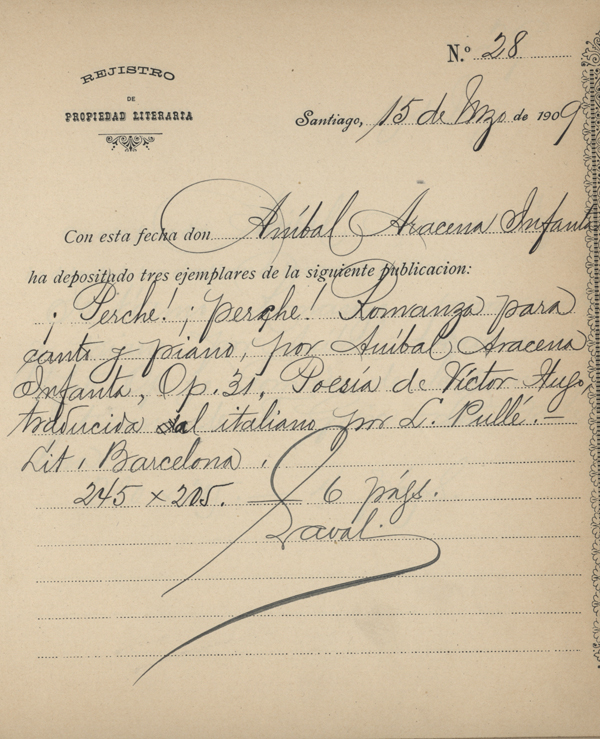 N.º 28
REJISTRO
DE
PROPIEDAD LITERARIA
Santiago, 15 de Mzo de 1909
Con esta fecha don Aníbal Aracena Infanta
ha depositado tres ejemplares de la siguiente publicacion:
¡Perché! ¡perche! Romanza para
canto y piano, por Aníbal Aracena
Infanta, Op. 31, Poesía de Víctor Hugo,
traducida al italiano por L. Pullé. —
Lit. Barcelona.
245 x 205. — 6 págs.
Laval